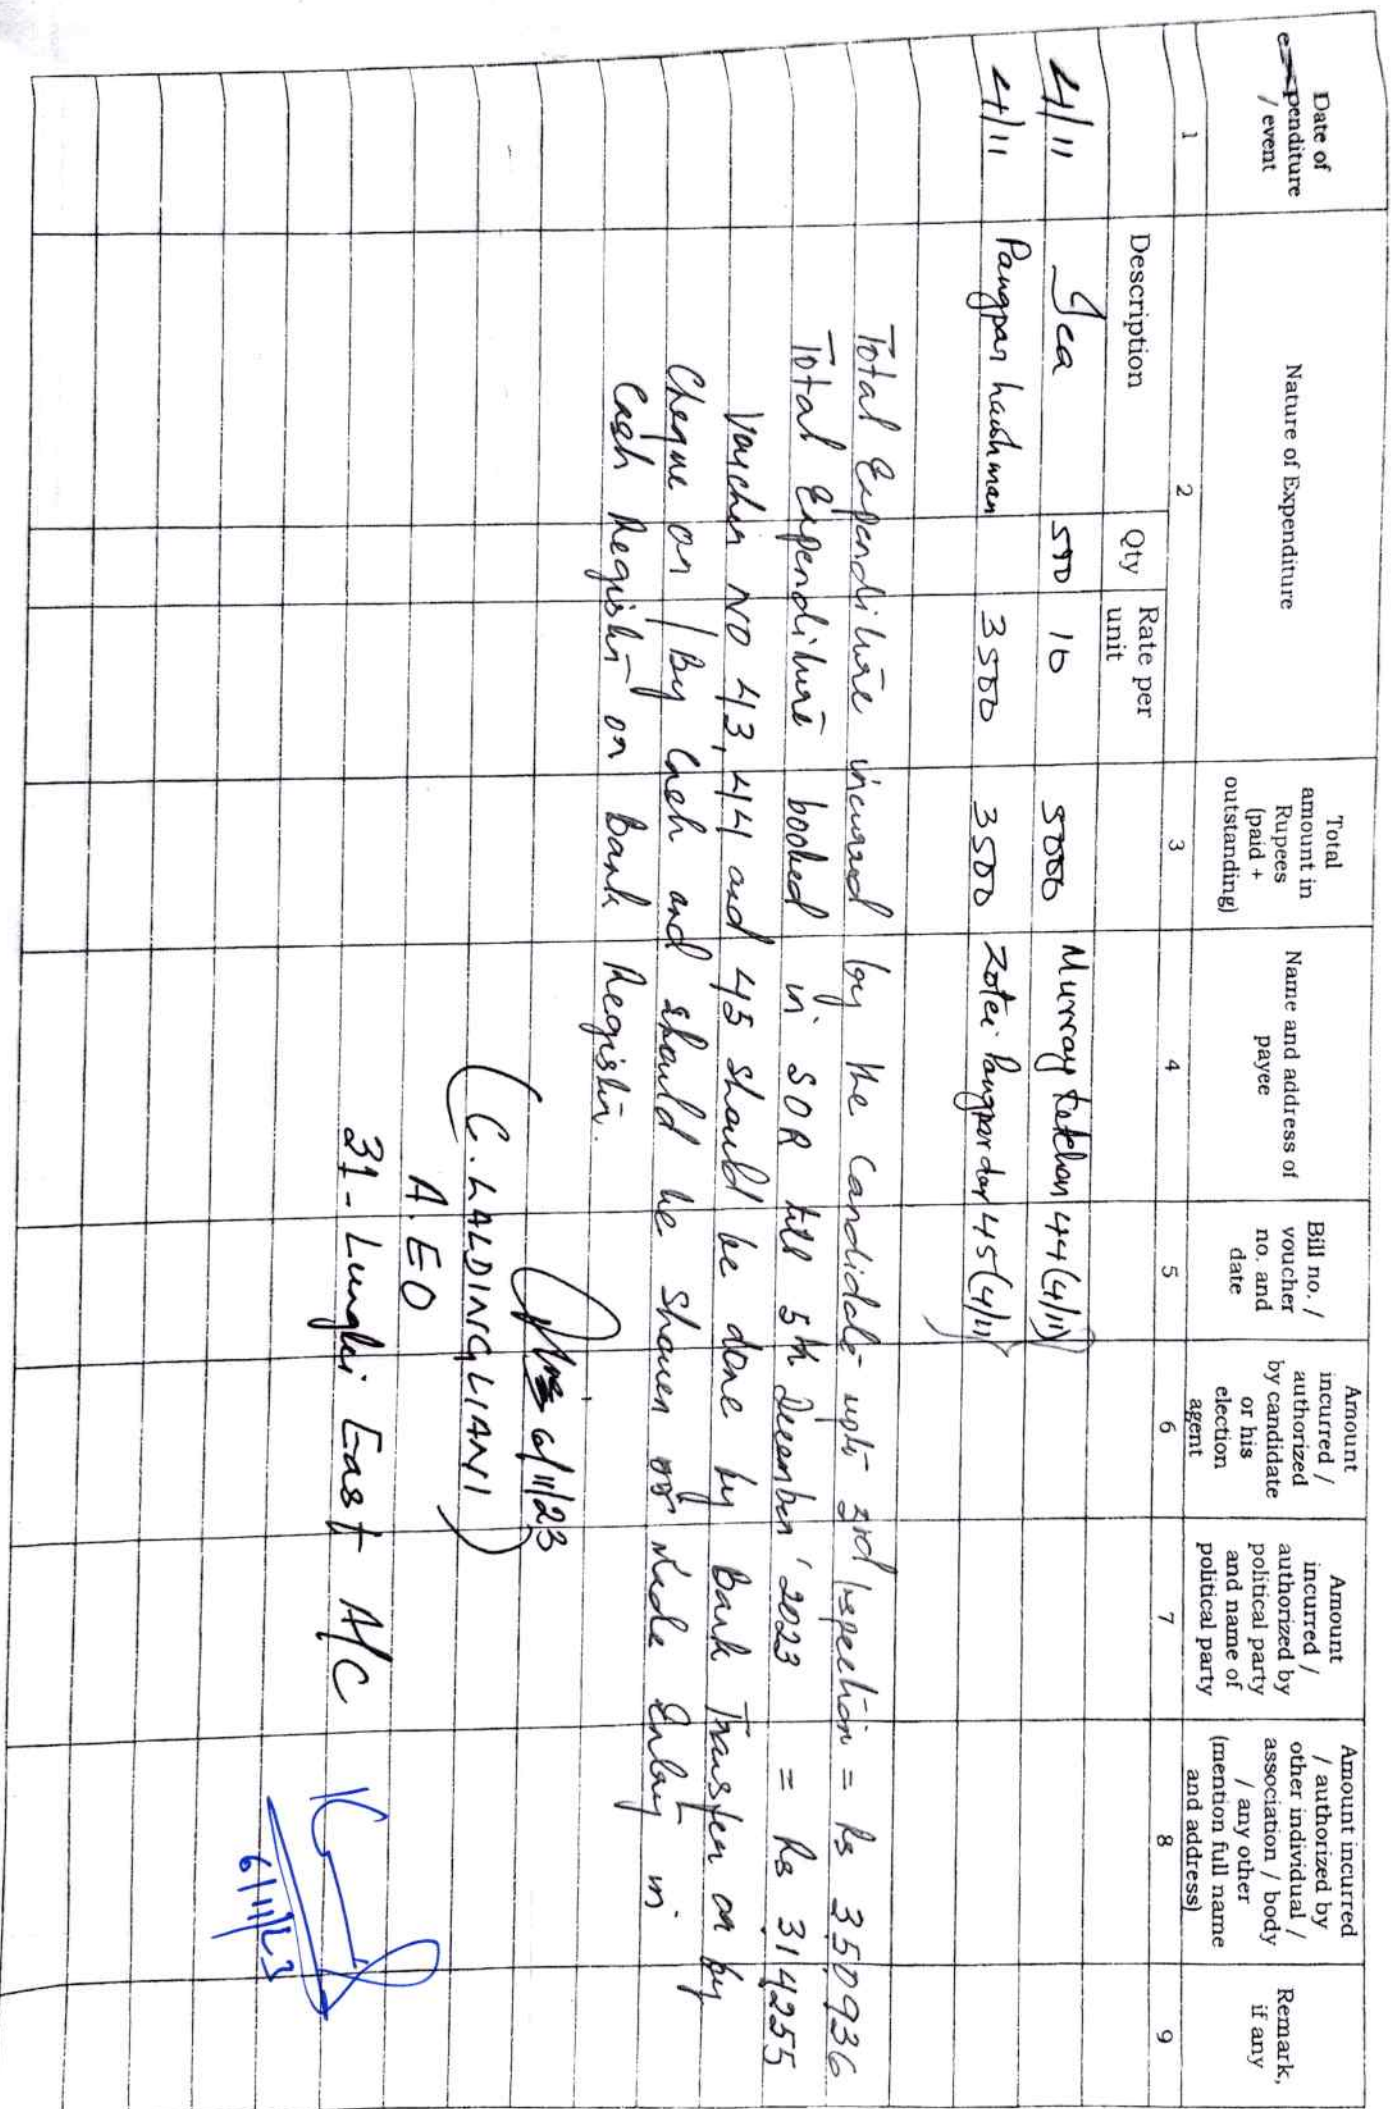 Date of expenditure / event
Nature of Expenditure
Total amount in Rupees (paid + outstanding)
Name and address of payee
Bill no. / voucher no. and date
Amount incurred / authorized by candidate or his election agent
Amount incurred / authorized by political party and name of political party
Amount incurred / authorized by other individual / association / body / any other (mention full name and address)
Remark, if any
1 2 3 4 5 6 7 8 9
Description Qty Rate per unit
4/11 Tea 500 10 5000 Murray 44(4/11)
4/11 Pangpar hawhman 3500 3500 Zotei Pangpar dar 45(4/11)
Total Expenditure incurred by the candidate upto 3rd Inspection = Rs 350936
Total Expenditure booked in SOR till 5th December '2023 = Rs 314255
Voucher NO 43, 44 and 45 should be done by Bank Transfer or by
Cheque or / By Cash and should be shown or Made Entry in
Cash Register or Bank Register.
6/11/23
(C. LALDINGLIANI)
A.EO
31-Lunglei East A/C
6/11/23